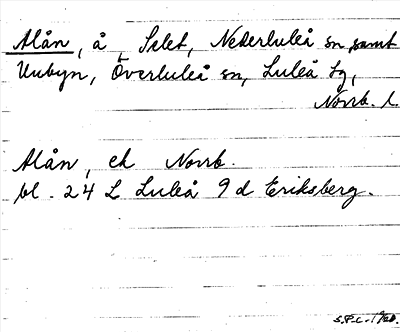 Alån, å, Selet, Nederluleå sn samt
Unbyn, Överluleå sn, Luleå tg,
Norrb. l.
Alån, ek Norrb.
bl. 24 L Luleå 9 d Eriksberg.